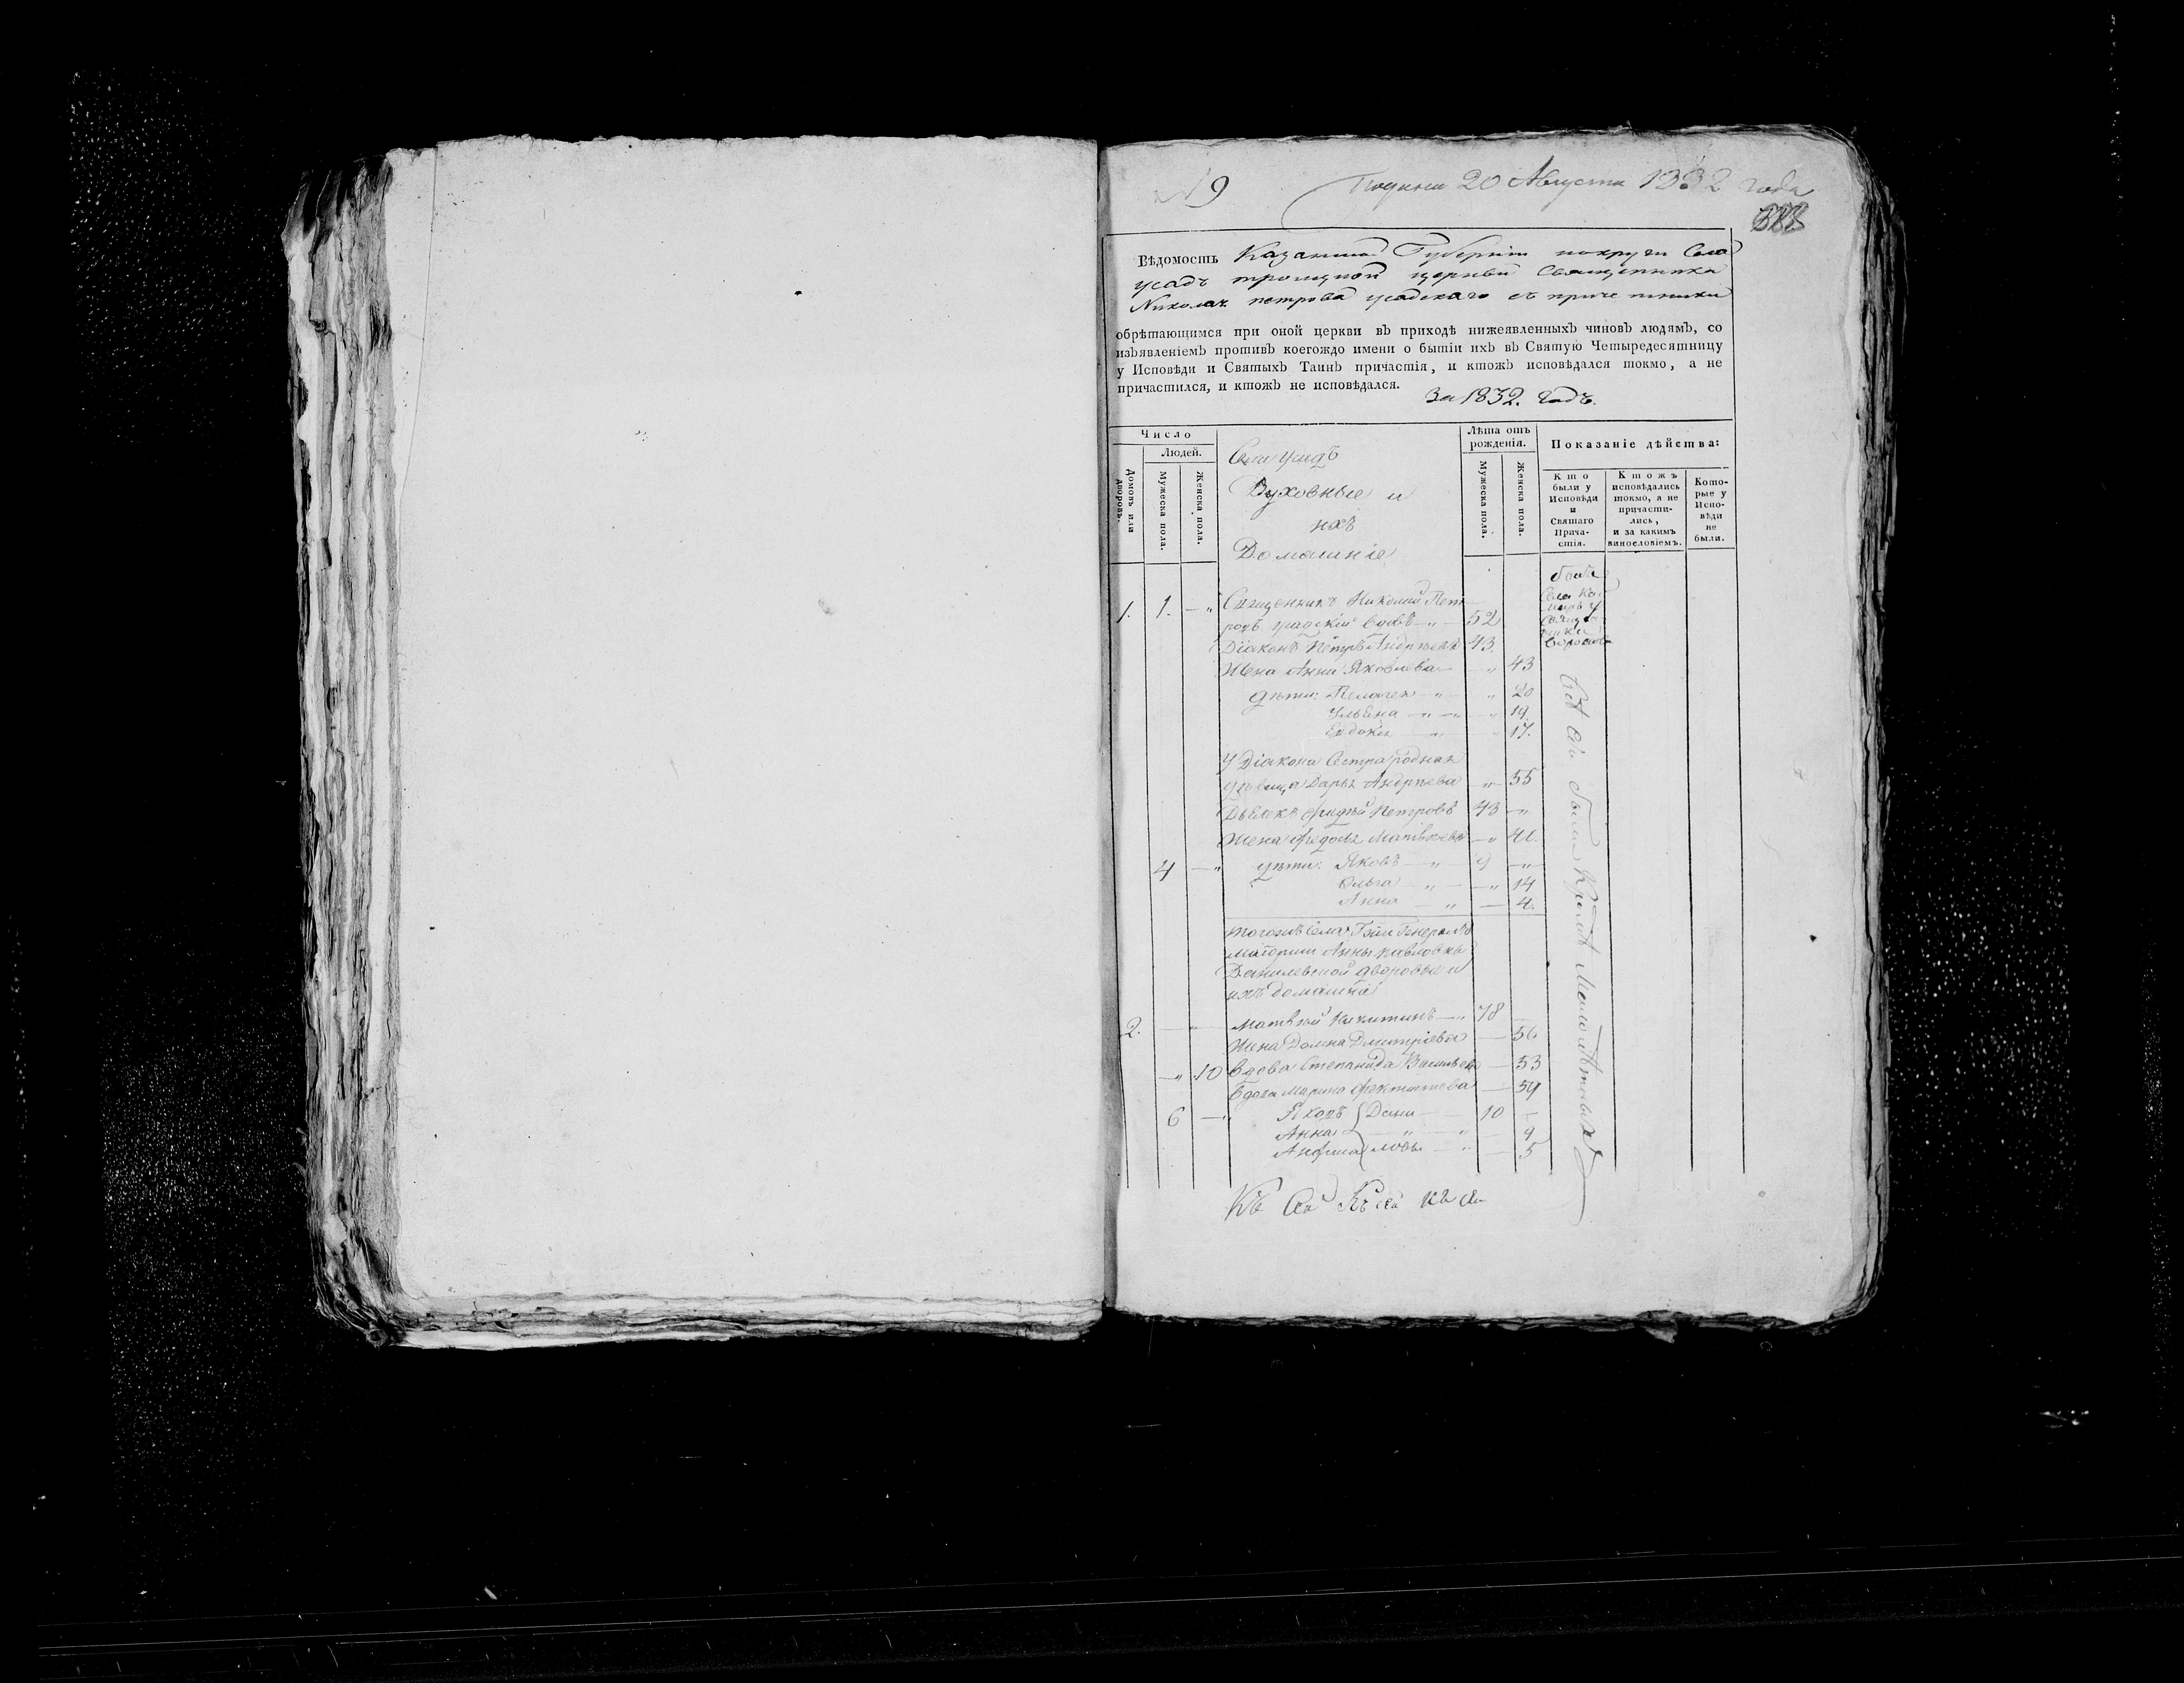 № 9
Подана 20 Августа 1832 года
Вѣдомость Казанской Губернiи и округи Села
усадъ троицкой церкви Священника
Николая петрова усадскаго съ причетники
обрѣтающимся при оной церкви въ приходѣ нижеявленныхъ чиновъ людямъ, со
изъявленіемъ противъ коегождо имени о бытіи ихъ въ Святую Четыредесятницу
у Исповѣди и Святыхъ Таинъ причастія, и ктожъ исповѣдался токмо, а не
причастился, и ктожъ не исповѣдался.
За 1832. Годъ.
Число
Людей.
Домовъ или дворовъ.
Мужеска пола.
Женска пола.
Села Усадъ
Духовные и
ихъ
Домашніе
Лѣта отъ рожденія.
Мужеска пола.
Женска пола.
Показаніе дѣйства:
Кто были у Исповѣди и Святаго Прича-стія.
Ктожъ исповѣдались токмо, а не причасти-лись, и за какимъ винословіемъ.
Кото-рые у Испо-вѣди не были.
1. 1. —„ Священникъ Николай Пет
ровъ усадскій вдовъ —„— 52
Діаконъ Петръ Андреевъ 43.
Жена Анна Яковлева — „ 43
дѣти: Пелагея —„— „ 20
Ульяна —„—„ „ 19.
Евдокія —„ „ 17.
У Діакона Сестра родная
Дарья Андреева „ 55
Дьячекъ Петровъ 43 —„
Жена Федосья Матвѣева —„ 40.
4 —„ дѣти: Яковъ —„ 9 —„
Ольга —„— —„ 14
Анна —„ — 4.
Тогожъ села Г-жи Генералъ
маіорши Анны павловны
дворовые и
ихъ домашніе
2. —„— Матвѣй Никитинъ —„ 78
Жена Домна Дмитріева — 56
—„ 10 Вдова Степанида Васильева — 53
Вдова Марина — 59
6 —„ Яковъ } Дани— 10 —
Анна —„—„ — 9
ловы —„ — 5
Всѣ сіи были Кромѣ Малолѣтныхъ